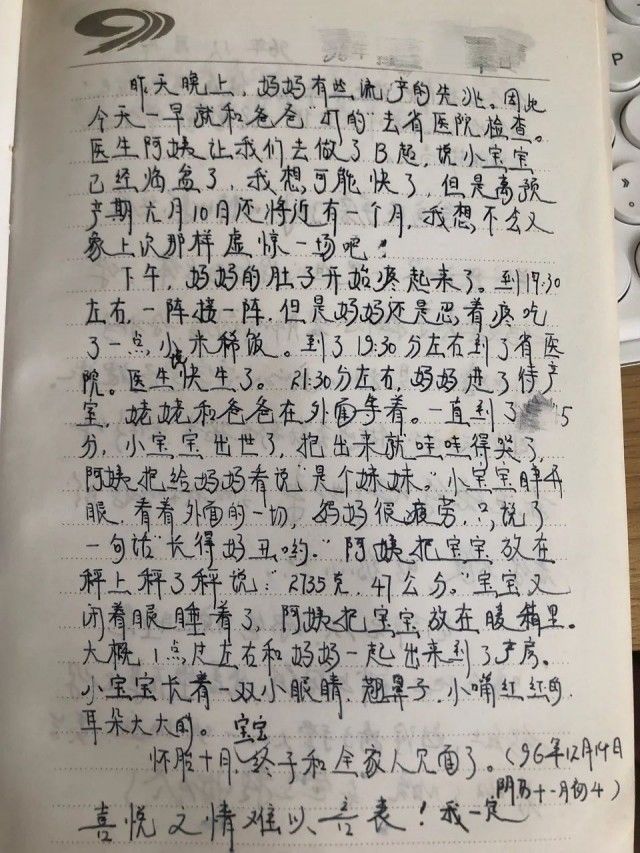 昨天晚上，妈妈有些流产的先兆。因此
今天一早就和爸爸“打的”去省医院检查。
医生阿姨让我们去做了B超，说小宝宝
已经临盆了，我想可能快了，但是离预
产期元月10日还将近有一个月，我想不会又
象上次那样虚惊一场吧！
下午，妈妈的肚子开始疼起来了。到17:30
左右，一阵接一阵，但是妈妈还是忍着疼吃
了一点小米稀饭。到了19:30分左右到了省医
院。医生说快生了。21:30分左右，妈妈进了待产
室，姥姥和爸爸在外面等着。一直到了 5
分，小宝宝出世了，抱出来就哇哇得哭了，
阿姨把给妈妈看说“是个妹妹。”小宝宝睁开
眼，看着外面的一切，妈妈很疲劳，只说了
一句话“长得好丑哟。”阿姨把宝宝放在
秤上秤了秤说：“2735克，47公分。”宝宝又
闭着眼睡着了，阿姨把宝宝放在暖箱里。
大概1点 左右和妈妈一起出来到了产房。
小宝宝长着一双小眼睛，翘鼻子，小嘴红红的，
耳朵大大的。
怀胎十月，宝宝终于和全家人见面了。（96年12月14日
阴历十一月初4）
喜悦之情难以言表！我一定